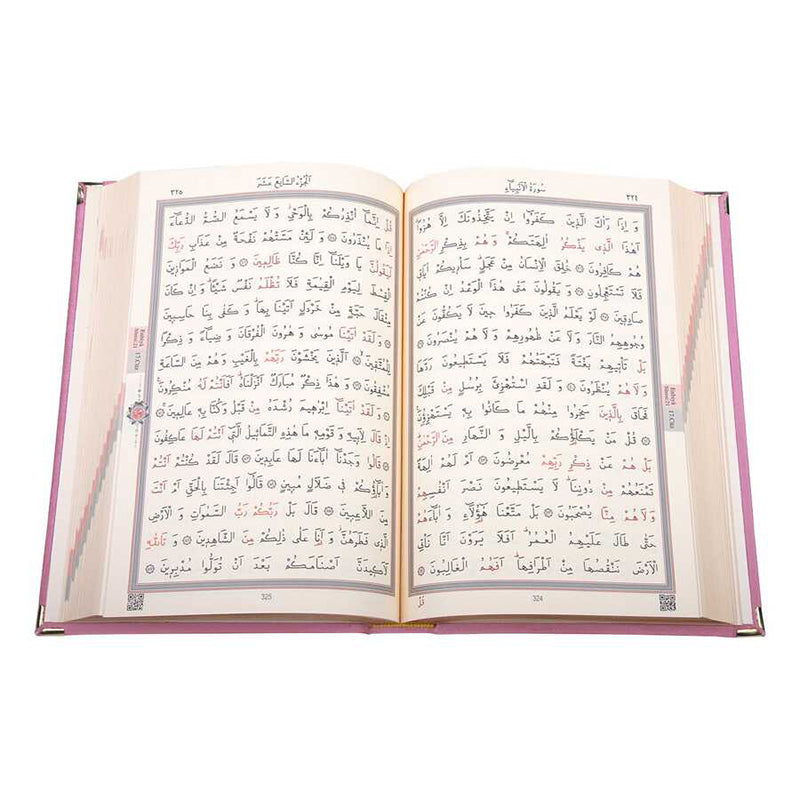 سُورَةُ الْاَنْبِيَاءِ
٣٢٤
وَ اِذَا رَاٰكَ الَّذِينَ كَفَرُٓوا اِنْ يَتَّخِذُونَكَ اِلَّا هُزُوًا
اَهٰذَا الَّذِي يَذْكُرُ اٰلِهَتَكُمْ وَ هُمْ بِذِكْرِ الرَّحْمٰنِ
هُمْ كَافِرُونَ ۞ خُلِقَ الْاِنْسَانُ مِنْ عَجَلٍ سَاُرِيكُمْ اٰيَاتِي
فَلَا تَسْتَعْجِلُونِ ۞ وَ يَقُولُونَ مَتٰى هٰذَا الْوَعْدُ اِنْ كُنْتُمْ
صَادِقِينَ ۞ لَوْ يَعْلَمُ الَّذِينَ كَفَرُوا حِينَ لَا يَكُفُّونَ عَنْ
وُجُوهِهِمُ النَّارَ وَ لَا عَنْ ظُهُورِهِمْ وَ لَا هُمْ يُنْصَرُونَ ۞
بَلْ تَأْتِيهِمْ بَغْتَةً فَتَبْهَتُهُمْ فَلَا يَسْتَطِيعُونَ رَدَّهَا
وَ لَا هُمْ يُنْظَرُونَ ۞ وَ لَقَدِ اسْتُهْزِئَ بِرُسُلٍ مِنْ قَبْلِكَ
فَحَاقَ بِالَّذِينَ سَخِرُوا مِنْهُمْ مَا كَانُوا بِهِ يَسْتَهْزِؤُنَ
۞ قُلْ مَنْ يَكْلَؤُكُمْ بِالَّيْلِ وَ النَّهَارِ مِنَ الرَّحْمٰنِ
بَلْ هُمْ عَنْ ذِكْرِ رَبِّهِمْ مُعْرِضُونَ ۞ اَمْ لَهُمْ اٰلِهَةٌ
تَمْنَعُهُمْ مِنْ دُونِنَا لَا يَسْتَطِيعُونَ نَصْرَ اَنْفُسِهِمْ
وَ لَا هُمْ مِنَّا يُصْحَبُونَ ۞ بَلْ مَتَّعْنَا هٰٓؤُلَاءِ وَ اٰبَٓاءَهُمْ
حَتّٰى طَالَ عَلَيْهِمُ الْعُمُرُ اَفَلَا يَرَوْنَ اَنَّا نَأْتِي
الْاَرْضَ نَنْقُصُهَا مِنْ اَطْرَافِهَا اَفَهُمُ الْغَالِبُونَ ۞
قُلْ
324
Enbiyâ
Sûresi:21
اَلْجُزْءُ السَّابِعَ عَشَرَ
٣٢٥
قُلْ اِنَّمَا اُنْذِرُكُمْ بِالْوَحْيِ وَ لَا يَسْمَعُ الصُّمُّ الدُّعَاءَ
اِذَا مَا يُنْذَرُونَ ۞ وَ لَئِنْ مَسَّتْهُمْ نَفْحَةٌ مِنْ عَذَابِ رَبِّكَ
لَيَقُولُنَّ يَا وَيْلَنَا اِنَّا كُنَّا ظَالِمِينَ ۞ وَ نَضَعُ الْمَوَازِينَ
الْقِسْطَ لِيَوْمِ الْقِيٰمَةِ فَلَا تُظْلَمُ نَفْسٌ شَيْئًا وَ اِنْ كَانَ
مِثْقَالَ حَبَّةٍ مِنْ خَرْدَلٍ اَتَيْنَا بِهَا وَ كَفٰى بِنَا حَاسِبِينَ
۞ وَ لَقَدْ اٰتَيْنَا مُوسٰى وَ هٰرُونَ الْفُرْقَانَ وَ ضِيَاءً وَ ذِكْرًا
لِلْمُتَّقِينَ ۞ اَلَّذِينَ يَخْشَوْنَ رَبَّهُمْ بِالْغَيْبِ وَ هُمْ مِنَ السَّاعَةِ
مُشْفِقُونَ ۞ وَ هٰذَا ذِكْرٌ مُبَارَكٌ اَنْزَلْنَاهُ اَفَاَنْتُمْ لَهُ مُنْكِرُونَ
۞ وَ لَقَدْ اٰتَيْنَا اِبْرٰهِيمَ رُشْدَهُ مِنْ قَبْلُ وَ كُنَّا بِهِ عَالِمِينَ ۞
اِذْ قَالَ لِاَبِيهِ وَ قَوْمِهِ مَا هٰذِهِ التَّمَاثِيلُ الَّتِي اَنْتُمْ لَهَا عَاكِفُونَ
۞ قَالُوا وَجَدْنَا اٰبَٓاءَنَا لَهَا عَابِدِينَ ۞ قَالَ لَقَدْ كُنْتُمْ اَنْتُمْ
وَ اٰبَٓاؤُكُمْ فِي ضَلَالٍ مُبِينٍ ۞ قَالُوا اَجِئْتَنَا بِالْحَقِّ اَمْ اَنْتَ
مِنَ اللَّاعِبِينَ ۞ قَالَ بَلْ رَبُّكُمْ رَبُّ السَّمٰوَاتِ وَ الْاَرْضِ
الَّذِي فَطَرَهُنَّ وَ اَنَا عَلٰى ذٰلِكُمْ مِنَ الشَّاهِدِينَ ۞ وَ تَاللّٰهِ
لَاَكِيدَنَّ اَصْنَامَكُمْ بَعْدَ اَنْ تُوَلُّوا مُدْبِرِينَ ۞
325
Enbiyâ
Sûresi:21